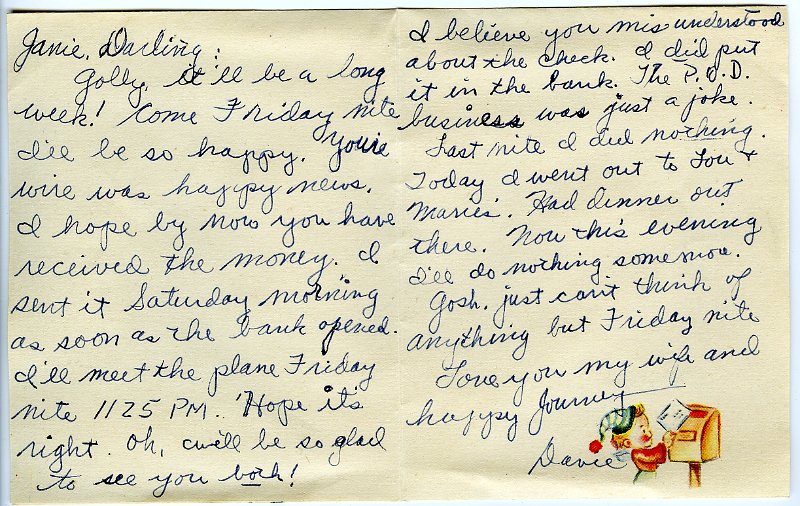 Janie, Darling:
Golly, it'll be a long
week! Come Friday nite
I'll be so happy. Youre
wire was happy news.
I hope by now you have
received the money. I
sent it Saturday morning
as soon as the bank opened.
I'll meet the plane Friday
nite 1125 PM. Hope it's
right. Oh, will be so glad
to see you back!
I believe you misunderstood
about the check. I did put
it in the bank. The P.O.D.
business was just a joke.
Last nite I did nothing.
Today I went out to Lou &
Maries'. Had dinner out
there. Now this evening
I'll do nothing somemore.
Gosh, just can't think of
anything but Friday nite
Love you my wife and
happy Journey
Davie